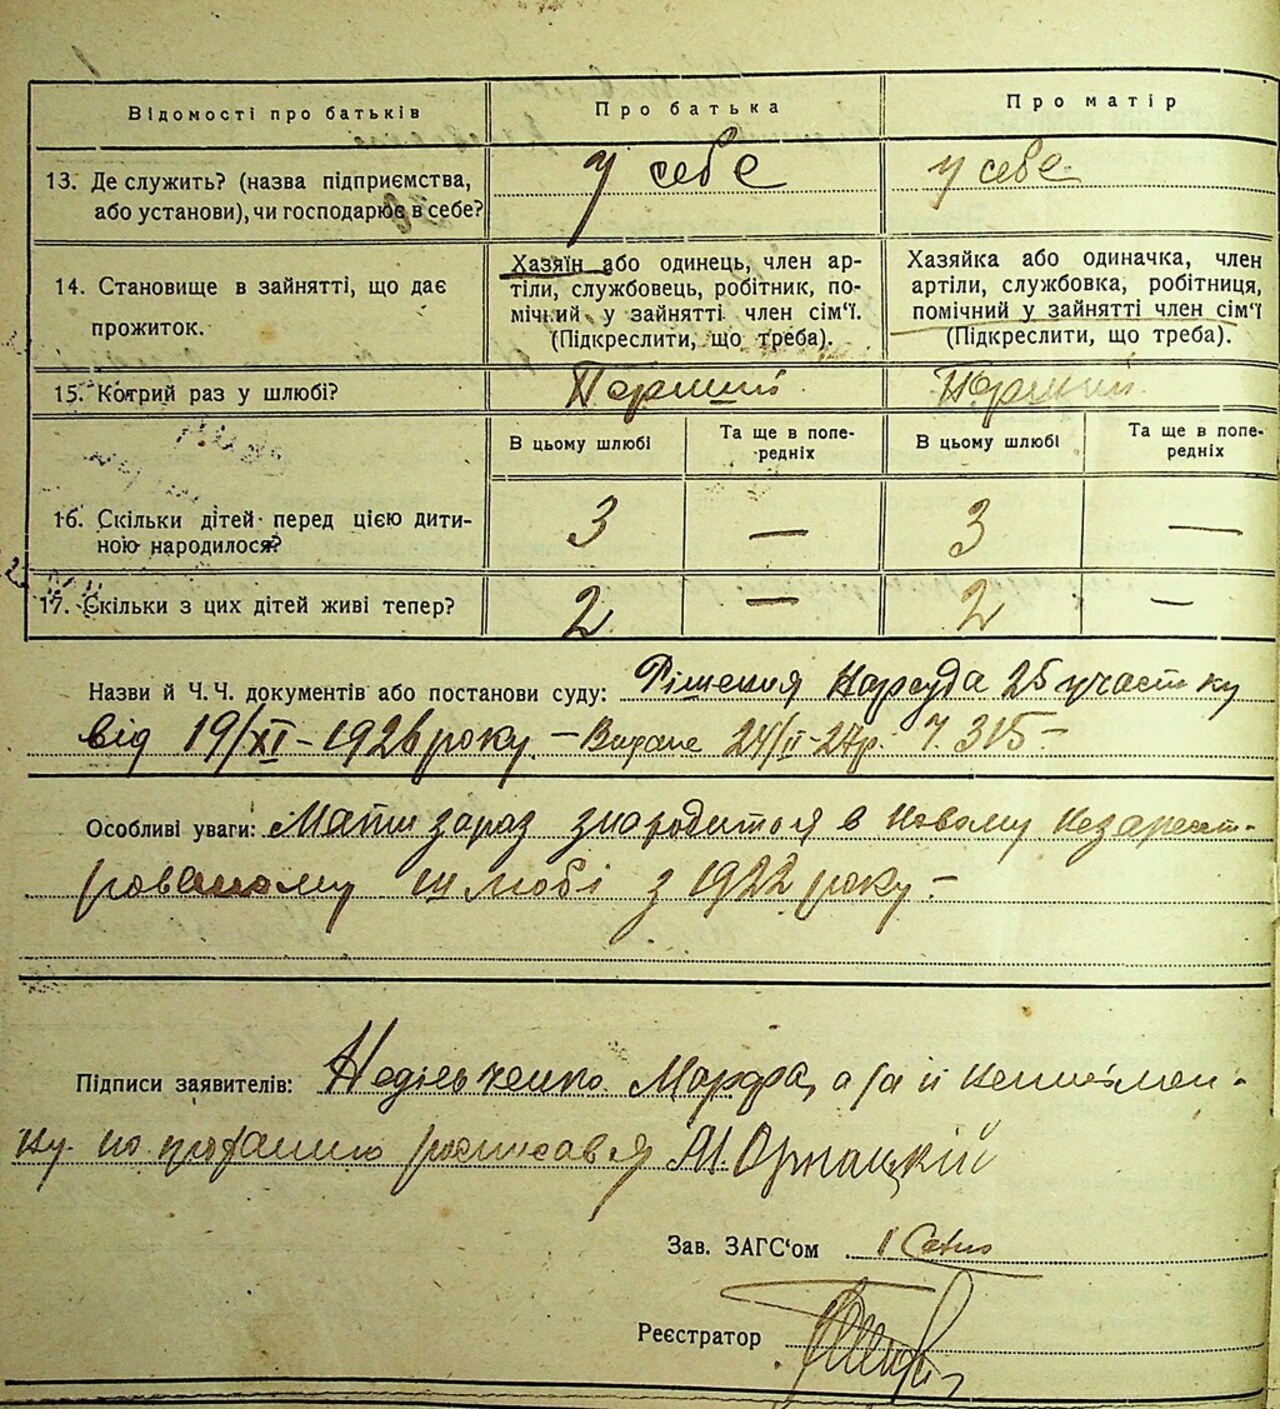 Відомості про батьків
Про батька
Про матір
13. Де служить? (назва підприємства,
або установи), чи господарює в себе?
у себе
у себе
14. Становище в зайнятті, що дає
прожиток.
Хазяїн або одинець, член ар-
тіли, службовець, робітник, по-
мічний у зайнятті член сім'ї.
(Підкреслити, що треба).
Хазяйка або одиначка, член
артіли, службовка, робітниця,
помічний у зайнятті член сім'ї
(Підкреслити, що треба).
15. Котрий раз у шлюбі?
Перший
Перший
В цьому шлюбі
Та ще в попе-
редніх
В цьому шлюбі
Та ще в попе-
редніх
16. Скільки дітей перед цією дити-
ною народилося?
3 — 3 —
17. Скільки з цих дітей живі тепер?
2 — 2 —
Назви й Ч.Ч. документів або постанови суду: Рішення Нарсуда 25 участку
від 19/XI – 1926 року – Видане 24/II-27р. Ч. 315 –
Особливі уваги: Мати зараз знаходиться в новому незарегіст-
рованому шлюбі з 1922 року –
Підписи заявителів: Недільченко Марфа, а за її неписьмен-
ну по проханню росписався
Зав. ЗАГС'ом
Реєстратор